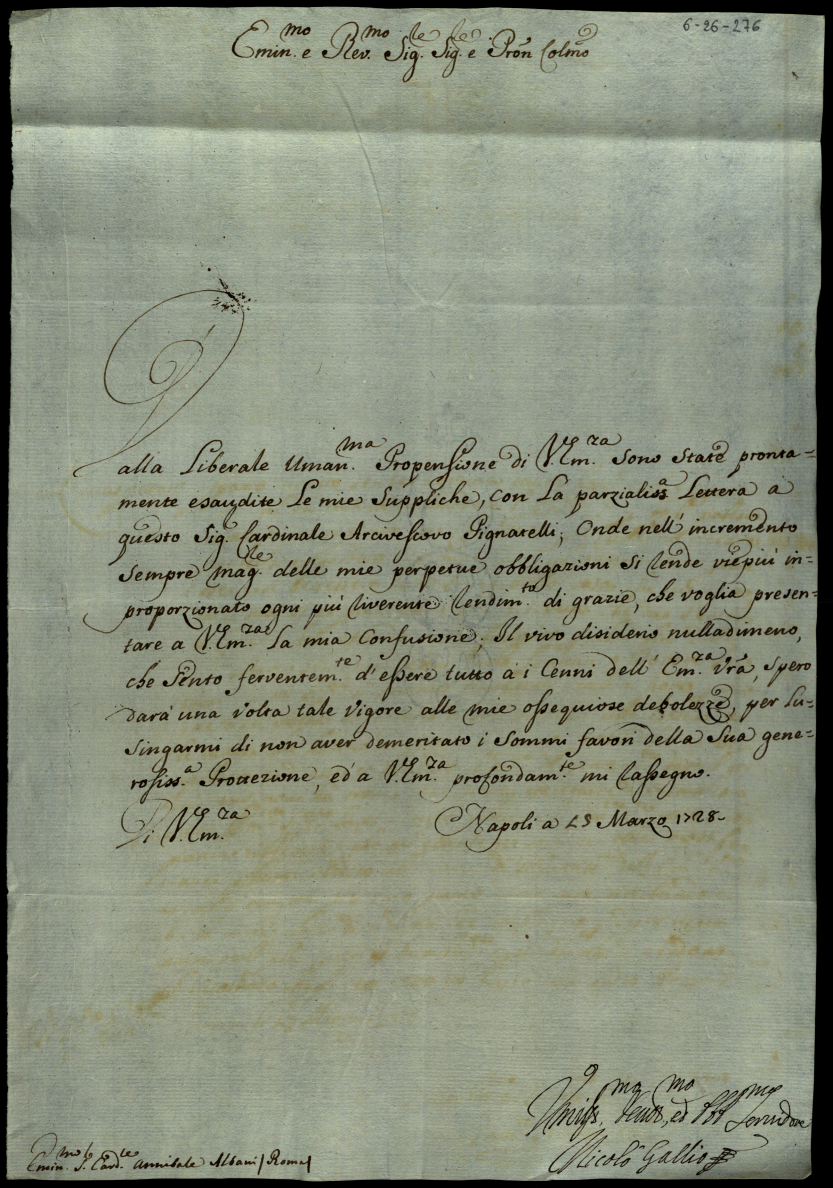 6-26-276
Emin.mo e Rev.mo Sig.re Sig.re e Pron Colmo
Dalla Liberale Uman.ma Propensione di V.Em.za sono state pronta=
mente esaudite le mie suppliche, con la parzialiss.a Lettera a
questo Sig. Cardinale Arcivescovo Pignatelli; Onde nell' incremento
sempre mag.re delle mie perpetue obbligazioni si rende viepiú in=
proporzionato ogni piú riverente rendim.to di grazie, che voglia presen=
tare a V.Em.za la mia Confusione; Il vivo disiderio nulladimeno,
che sento ferventem.te d' essere tutto a i Cenni dell' Em.za Vrã, spero
dará una volta tale vigore alle mie ossequiose debolezze, per lu=
singarmi di non aver demeritato i sommi favori della Sua gene=
rosiss.a Protezione, ed' a V.Em.za profondam.te mi rassegno.
Di V.Em.za Napoli a Marzo 1728.
Umiliss.mo Devot.mo, ed Obb.mo Servidore
Nicoló Gallio
Emin.mo S. Card.le Annibale Albani / Roma /